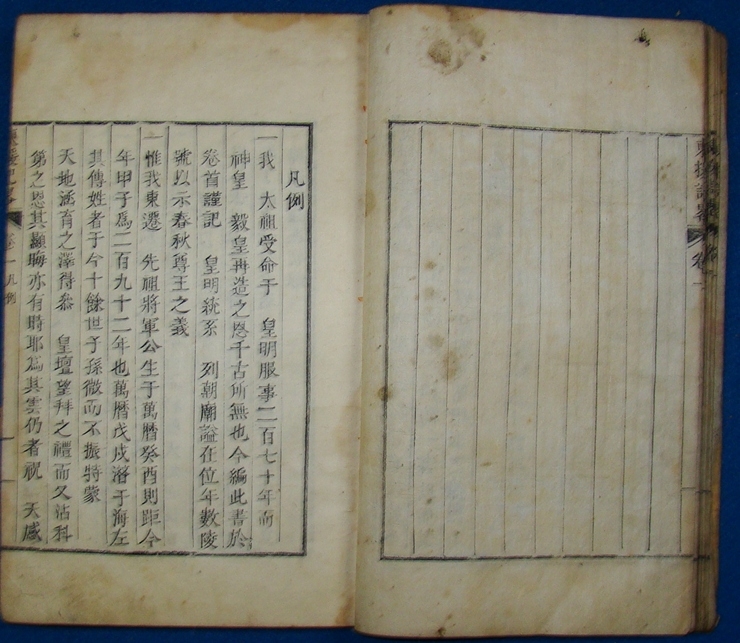 凡例
一我 太祖受命于 皇明服事二百七十年而
神皇 毅皇再造之恩千古所無也今編此書於
卷首謹記 皇明統系 列朝廟謚在位年數陵
號以示春秋尊王之義
一惟我東遷 先祖將軍公生于萬曆癸酉則距今
年甲子爲二百九十二年也萬曆戊戌潘于海左
其傳姓者于今十餘世子孫微而不振特蒙
天地涵育之澤得叅 皇壇望拜之禮而又沾科
第之恩其顯晦亦有時耶爲其雲仍者視 天感
卷一 凡例